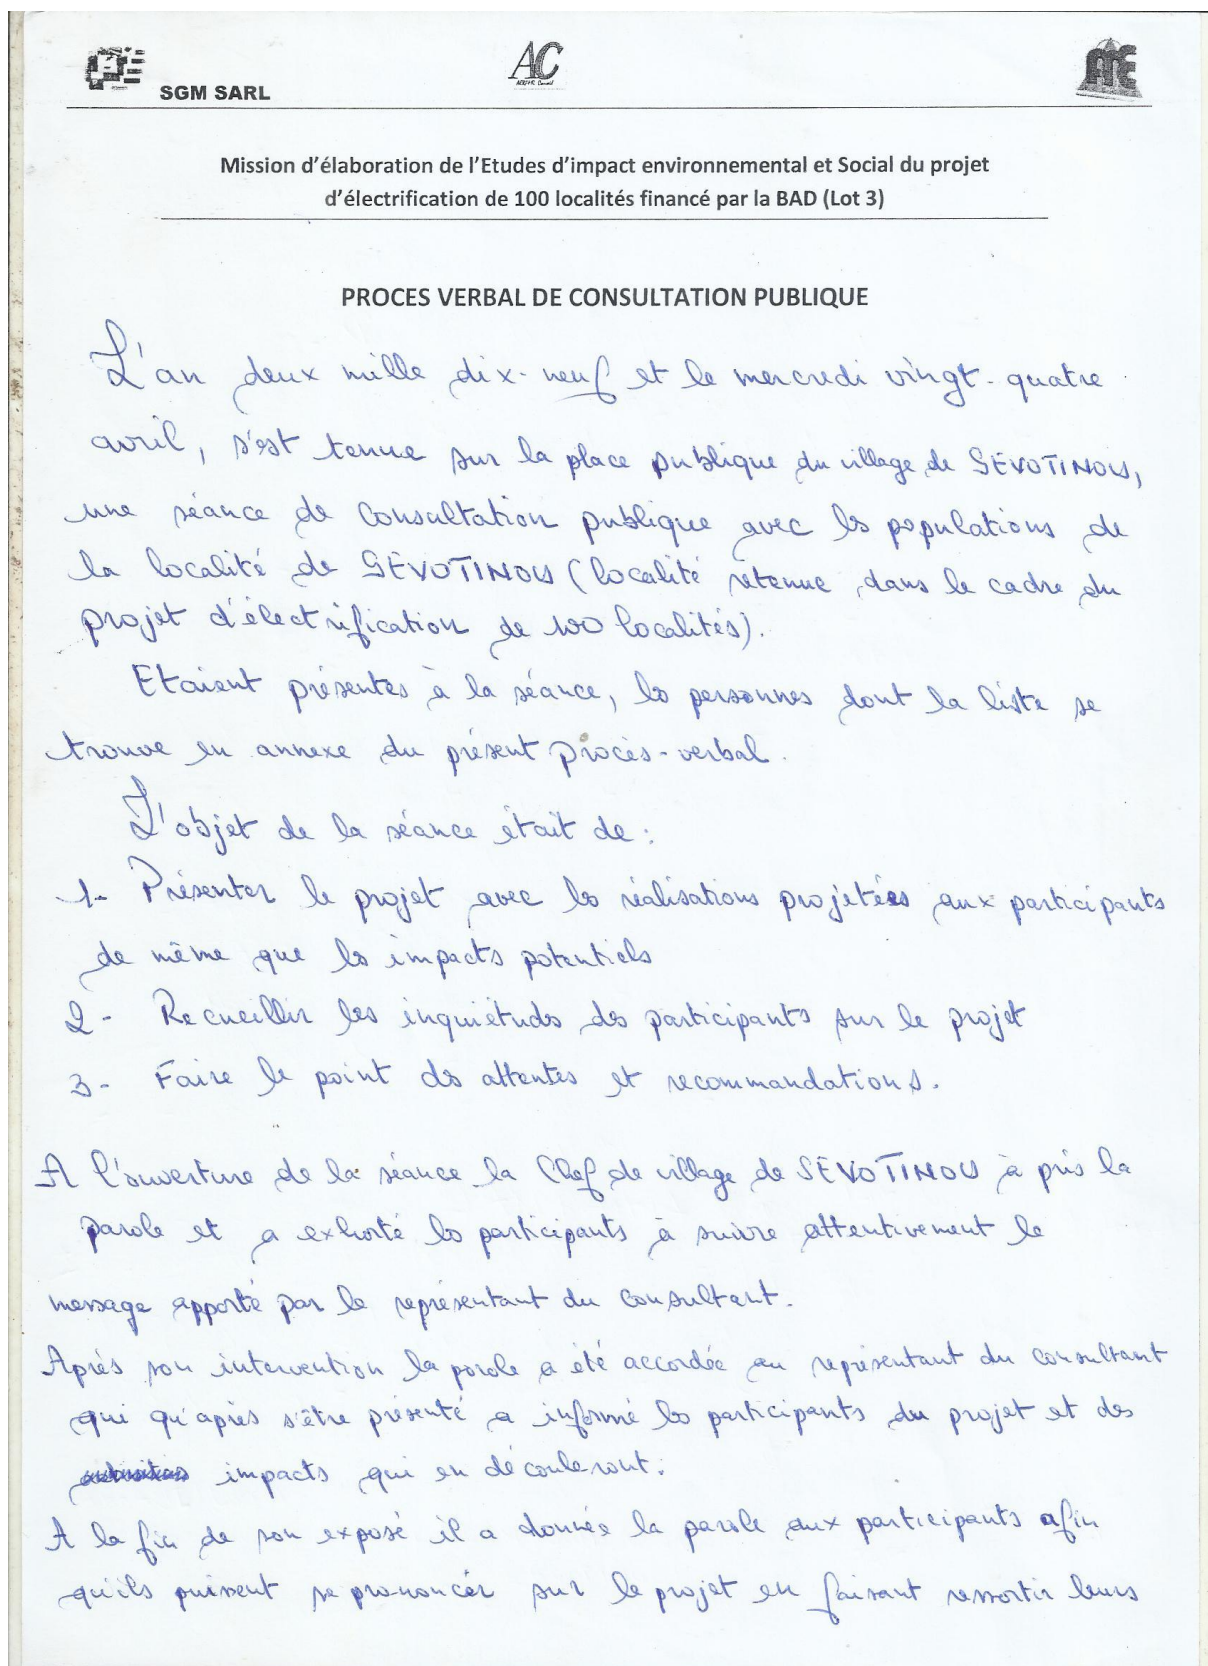 SGM SARL
AC
Mission d'élaboration de l'Etudes d'impact environnemental et Social du projet
d'électrification de 100 localités financé par la BAD (Lot 3)
PROCES VERBAL DE CONSULTATION PUBLIQUE
L'an deux mille dix-neuf et le mercredi vingt-quatre
avril, s'est tenue sur la place publique du village de SEVOTINOU,
une séance de Consultation publique avec les populations de
la localité de SEVOTINOU (localité retenue dans le cadre du
projet d'électrification de 100 localités).
Etaient présentes à la séance, les personnes dont la liste se
trouve en annexe du présent procès-verbal.
L'objet de la séance était de :
1- Présenter le projet avec les réalisations projetées aux participants
de même que les impacts potentiels
2- Recueillir les inquiétudes des participants sur le projet
3- Faire le point des attentes et recommandations.
A l'ouverture de la séance la Chef de village de SEVOTINOU à pris la
parole et a exhorté les participants à suivre attentivement le
message apporté par le représentant du Consultant.
Après son intervention la parole a été accordée au représentant du consultant
qui qu'après s'être présenté a informé les participants du projet et des
impacts qui en découleront.
A la fin de son exposé il a donnée la parole aux participants afin
qu'ils puissent se prononcer sur le projet en faisant ressortir leurs